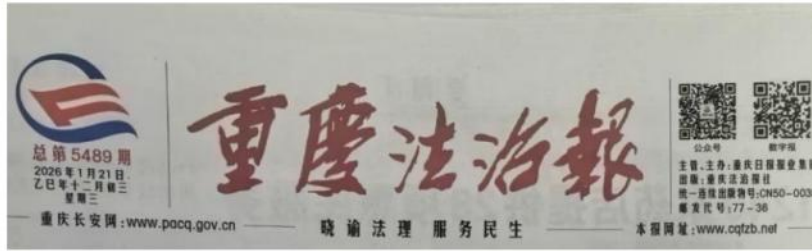 重慶法治報
总第5489期
2026年1月21日
乙巳年十二月初三
星期三
公众号 数字报
主管、主办:重庆日报报业集
出版:重庆法治报社
统一连续出版物号:CN50-003
邮发代号:77-36
重庆长安网:www.pacq.gov.cn
晓谕法理 服务民生
本报网址:www.cqfzb.net